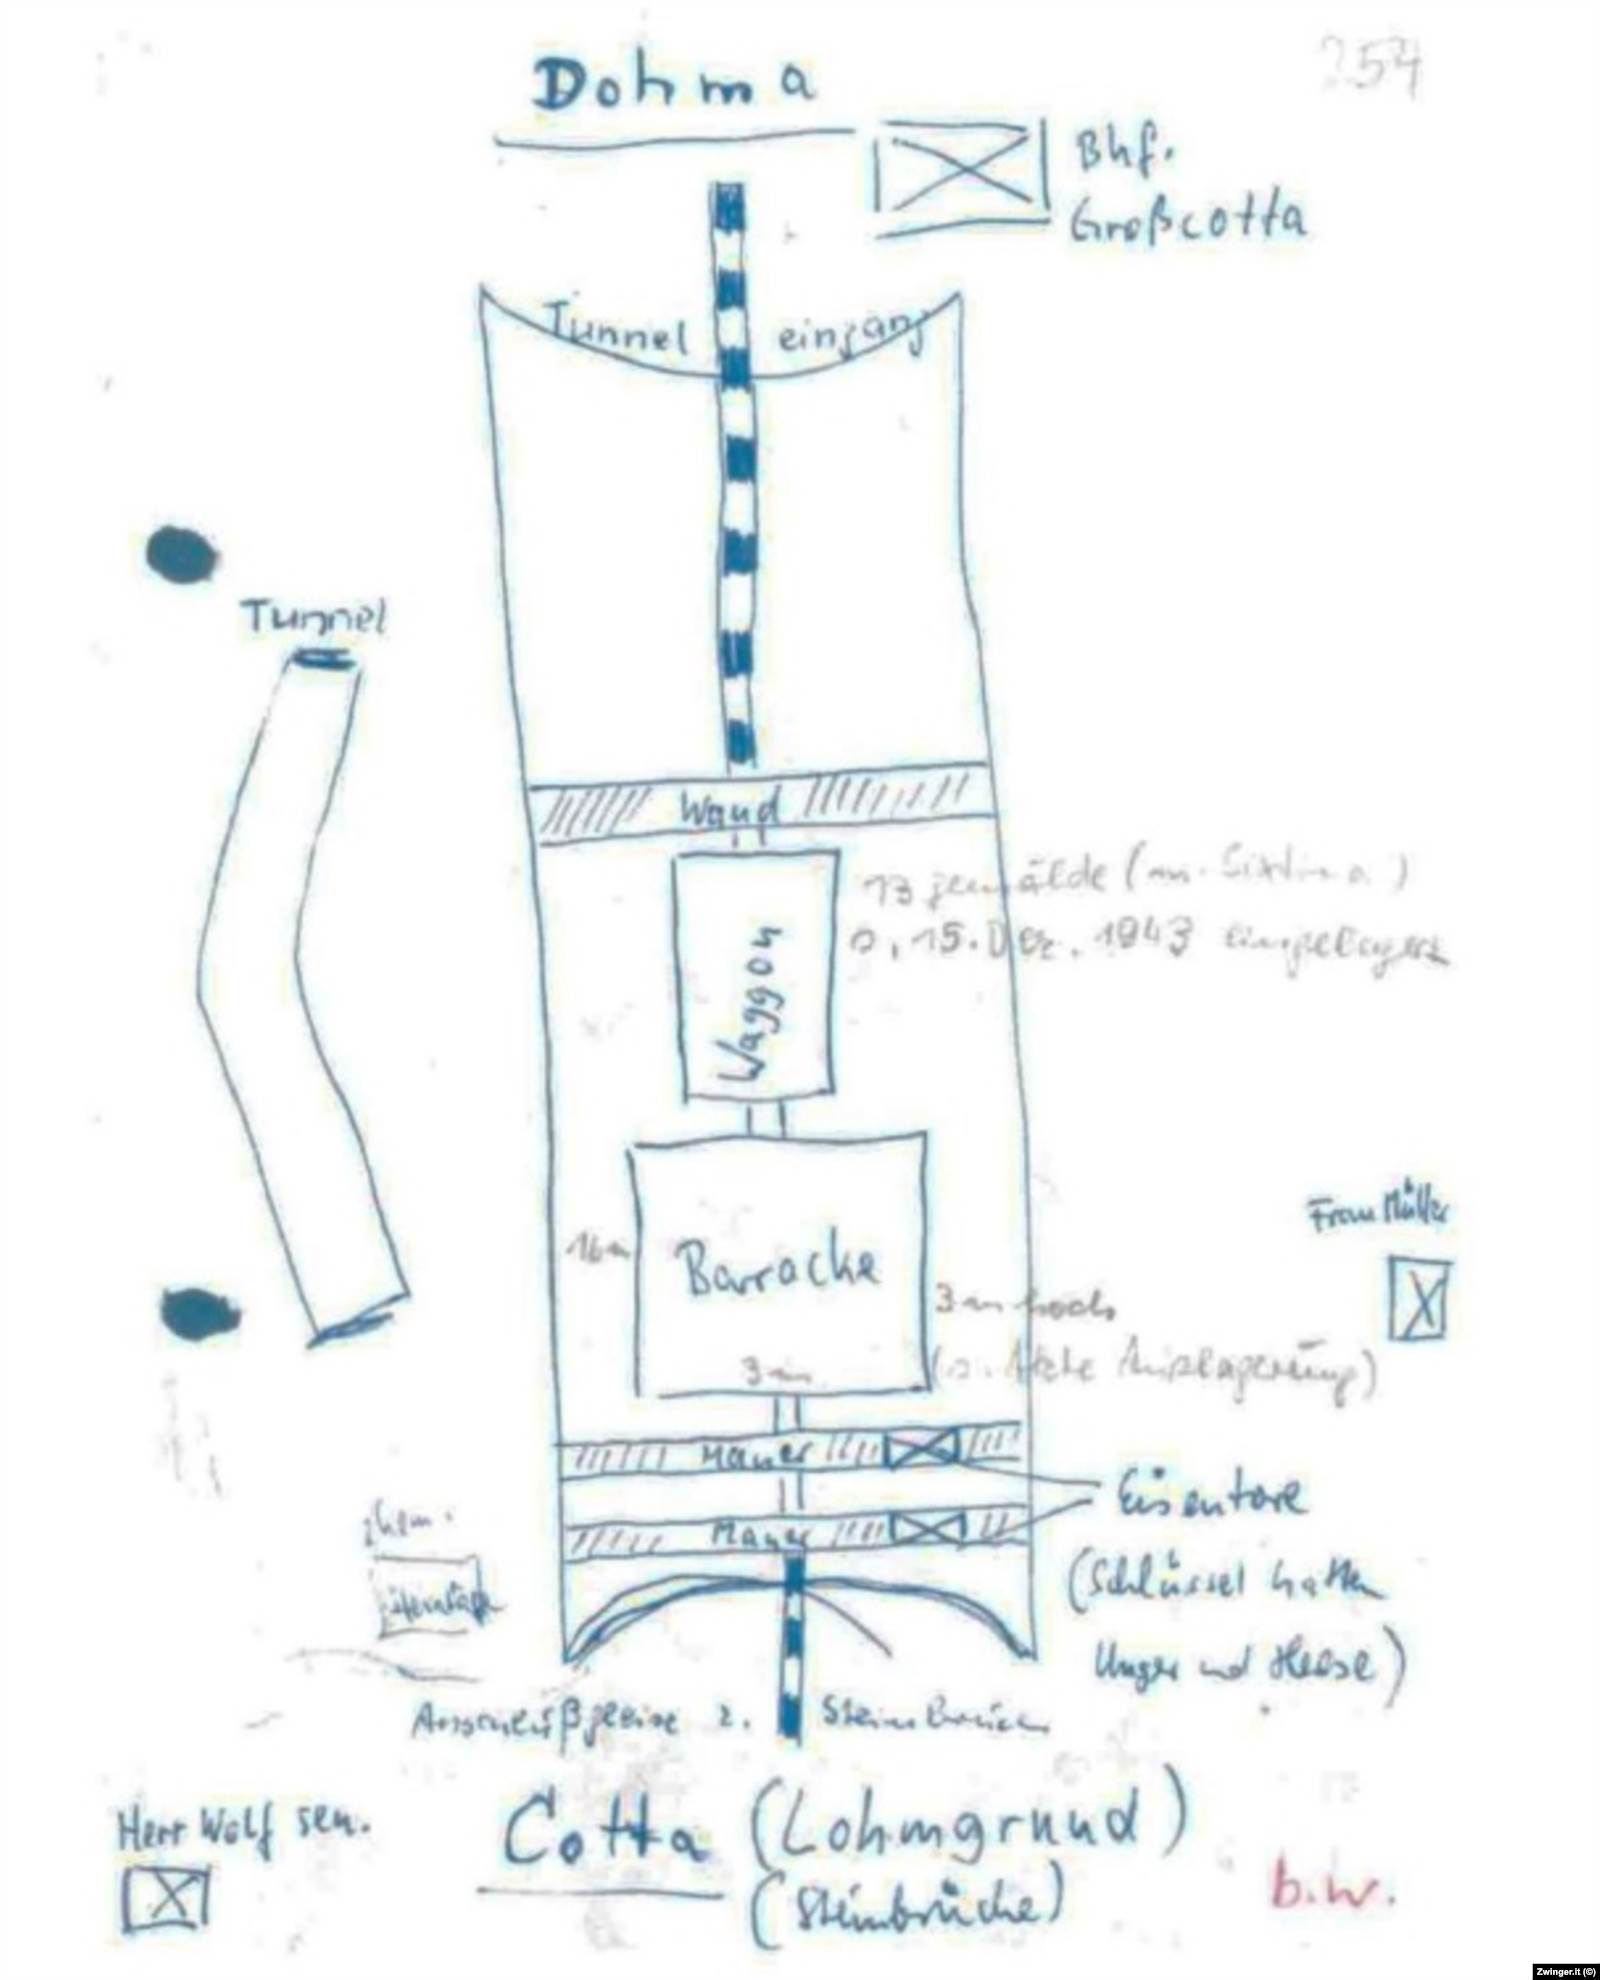 254
Dohma
Bhf.
Großcotta
Tunnel eingang
Tunnel
Wand
13 gemälde (m. Sixtina)
15. Dez. 1943 eingelagert
Waggon
Frau Müller
16m
Barracke
3m hoch
3m
letzte Auslagerung)
Mauer
Eisentore
Mauer
(Schlüssel hatten
Unger und Heese)
Anschlußgleise z. Steinbruch
Herr Wolf sen.
Cotta (Lohmgrund)
(Steinbrüche)
b.w.
Zwinger.it (©)